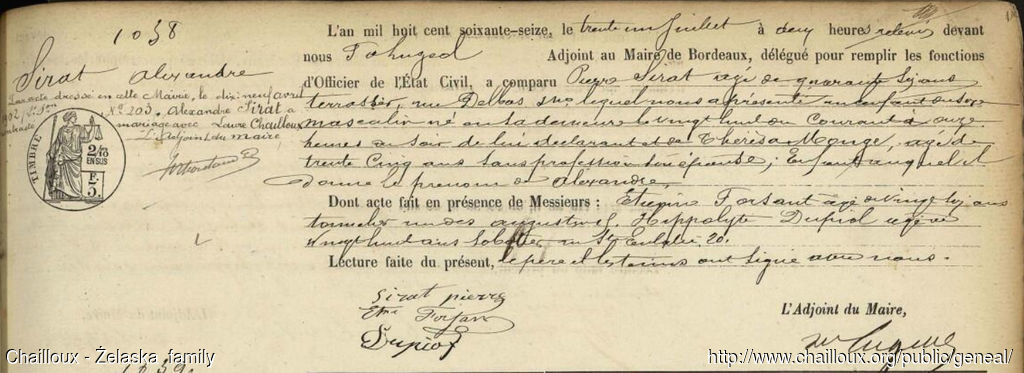 1038
Sirat Alexandre
Par acte dressé en cette Mairie, le dix neuf avril
902, N°
N° 203, Alexandre Sirat a
contracté
mariage avec Laure Chailloux
L'adjoint du maire
TIMBRE
2/10
EN SUS
F.
3.
L'an mil huit cent soixante-seize, le trente un juillet à deux heures relevée devant
nous Adjoint au Maire de Bordeaux, délégué pour remplir les fonctions
d'Officier de l'État Civil, a comparu Pierre Sirat âgé de quarante six ans
terrassier, rue Delbos lequel nous a présenté un enfant du sexe
masculin né en sa demeure le vingt huit du Courant à onze
heures du soir de lui déclarant et de Thérèsa Monge, âgée de
trente Cinq ans sans profession son épouse; Enfant auquel il
donne le prénom de Alexandre.
Dont acte fait en présence de Messieurs : Etienne Forsant âgé de vingt six ans
tonnelier rue des augustins, Hippolyte Dupiol âgé de
vingt huit ans rue Ste Eulalie 20.
Lecture faite du présent, le père et les témoins ont signé avec nous.
Sirat pierre
Dupiol
L'Adjoint du Maire,
Chailloux - Żelaska family
http://www.chailloux.org/public/geneal/